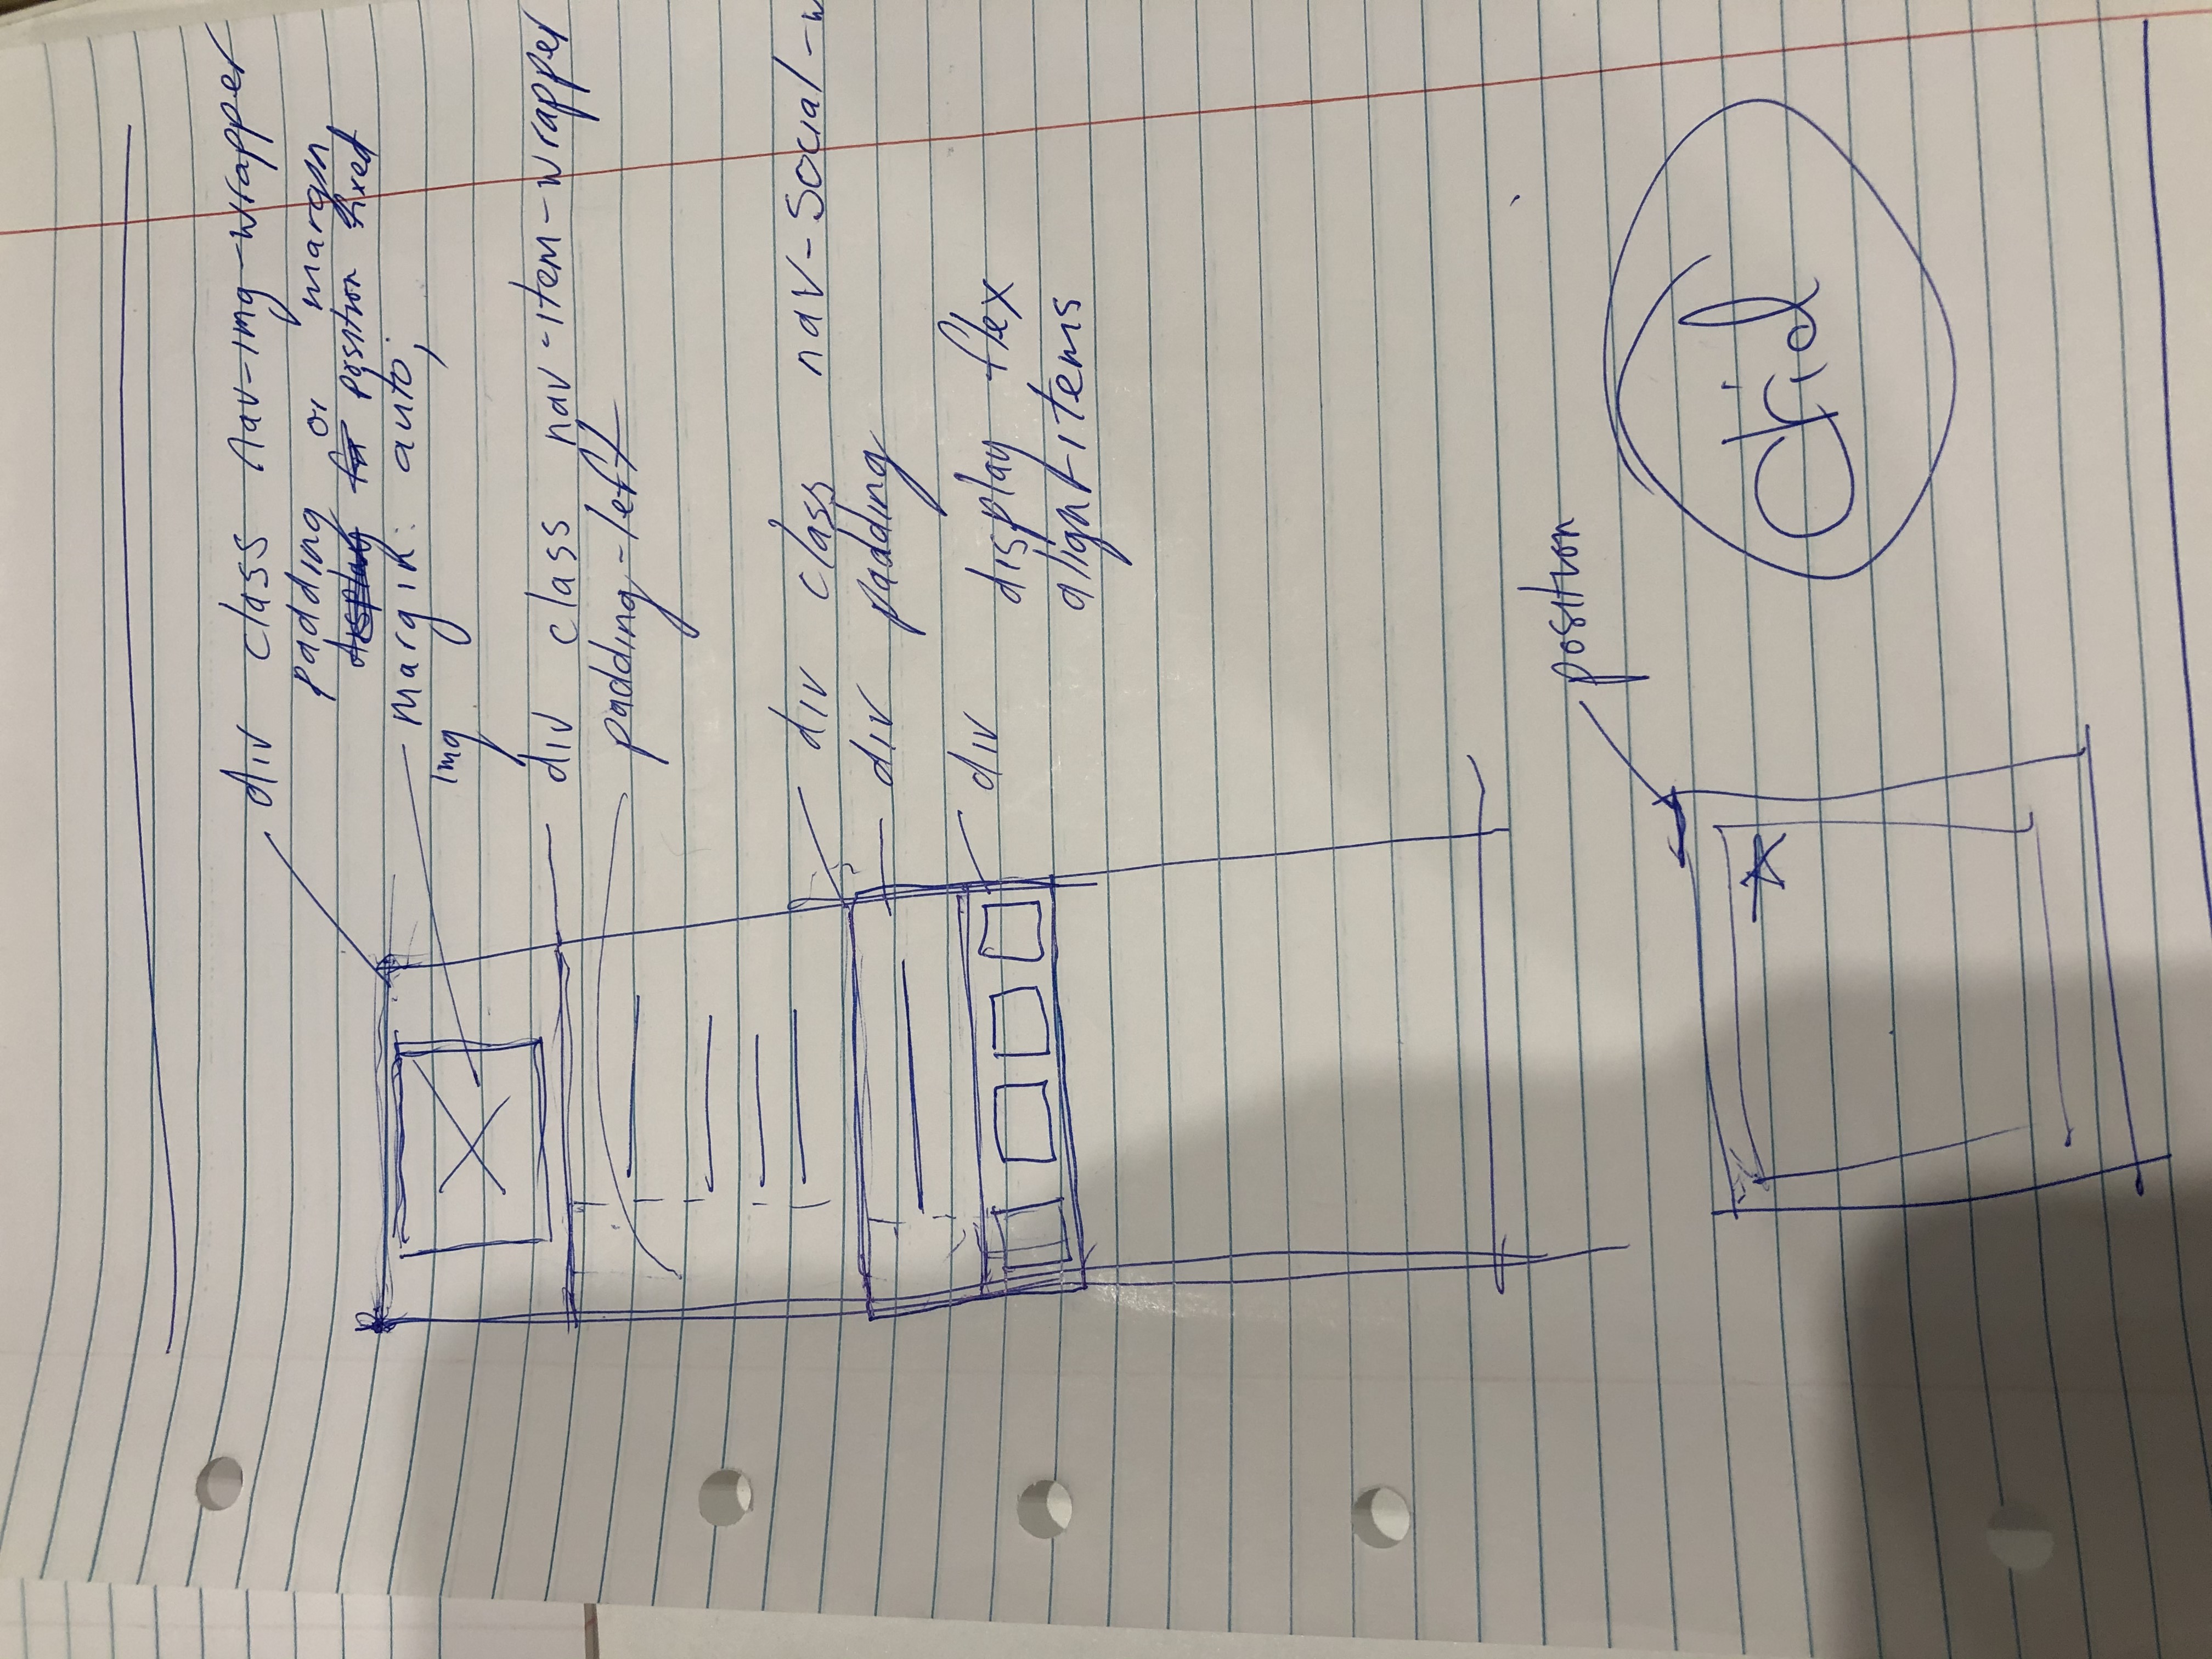 div class nav-img-wrapper
padding or margin
position fixed
margin: auto;
img
div class nav-item-wrapper
padding-left
div class nav-social-w
div padding
div display flex
align-items
position